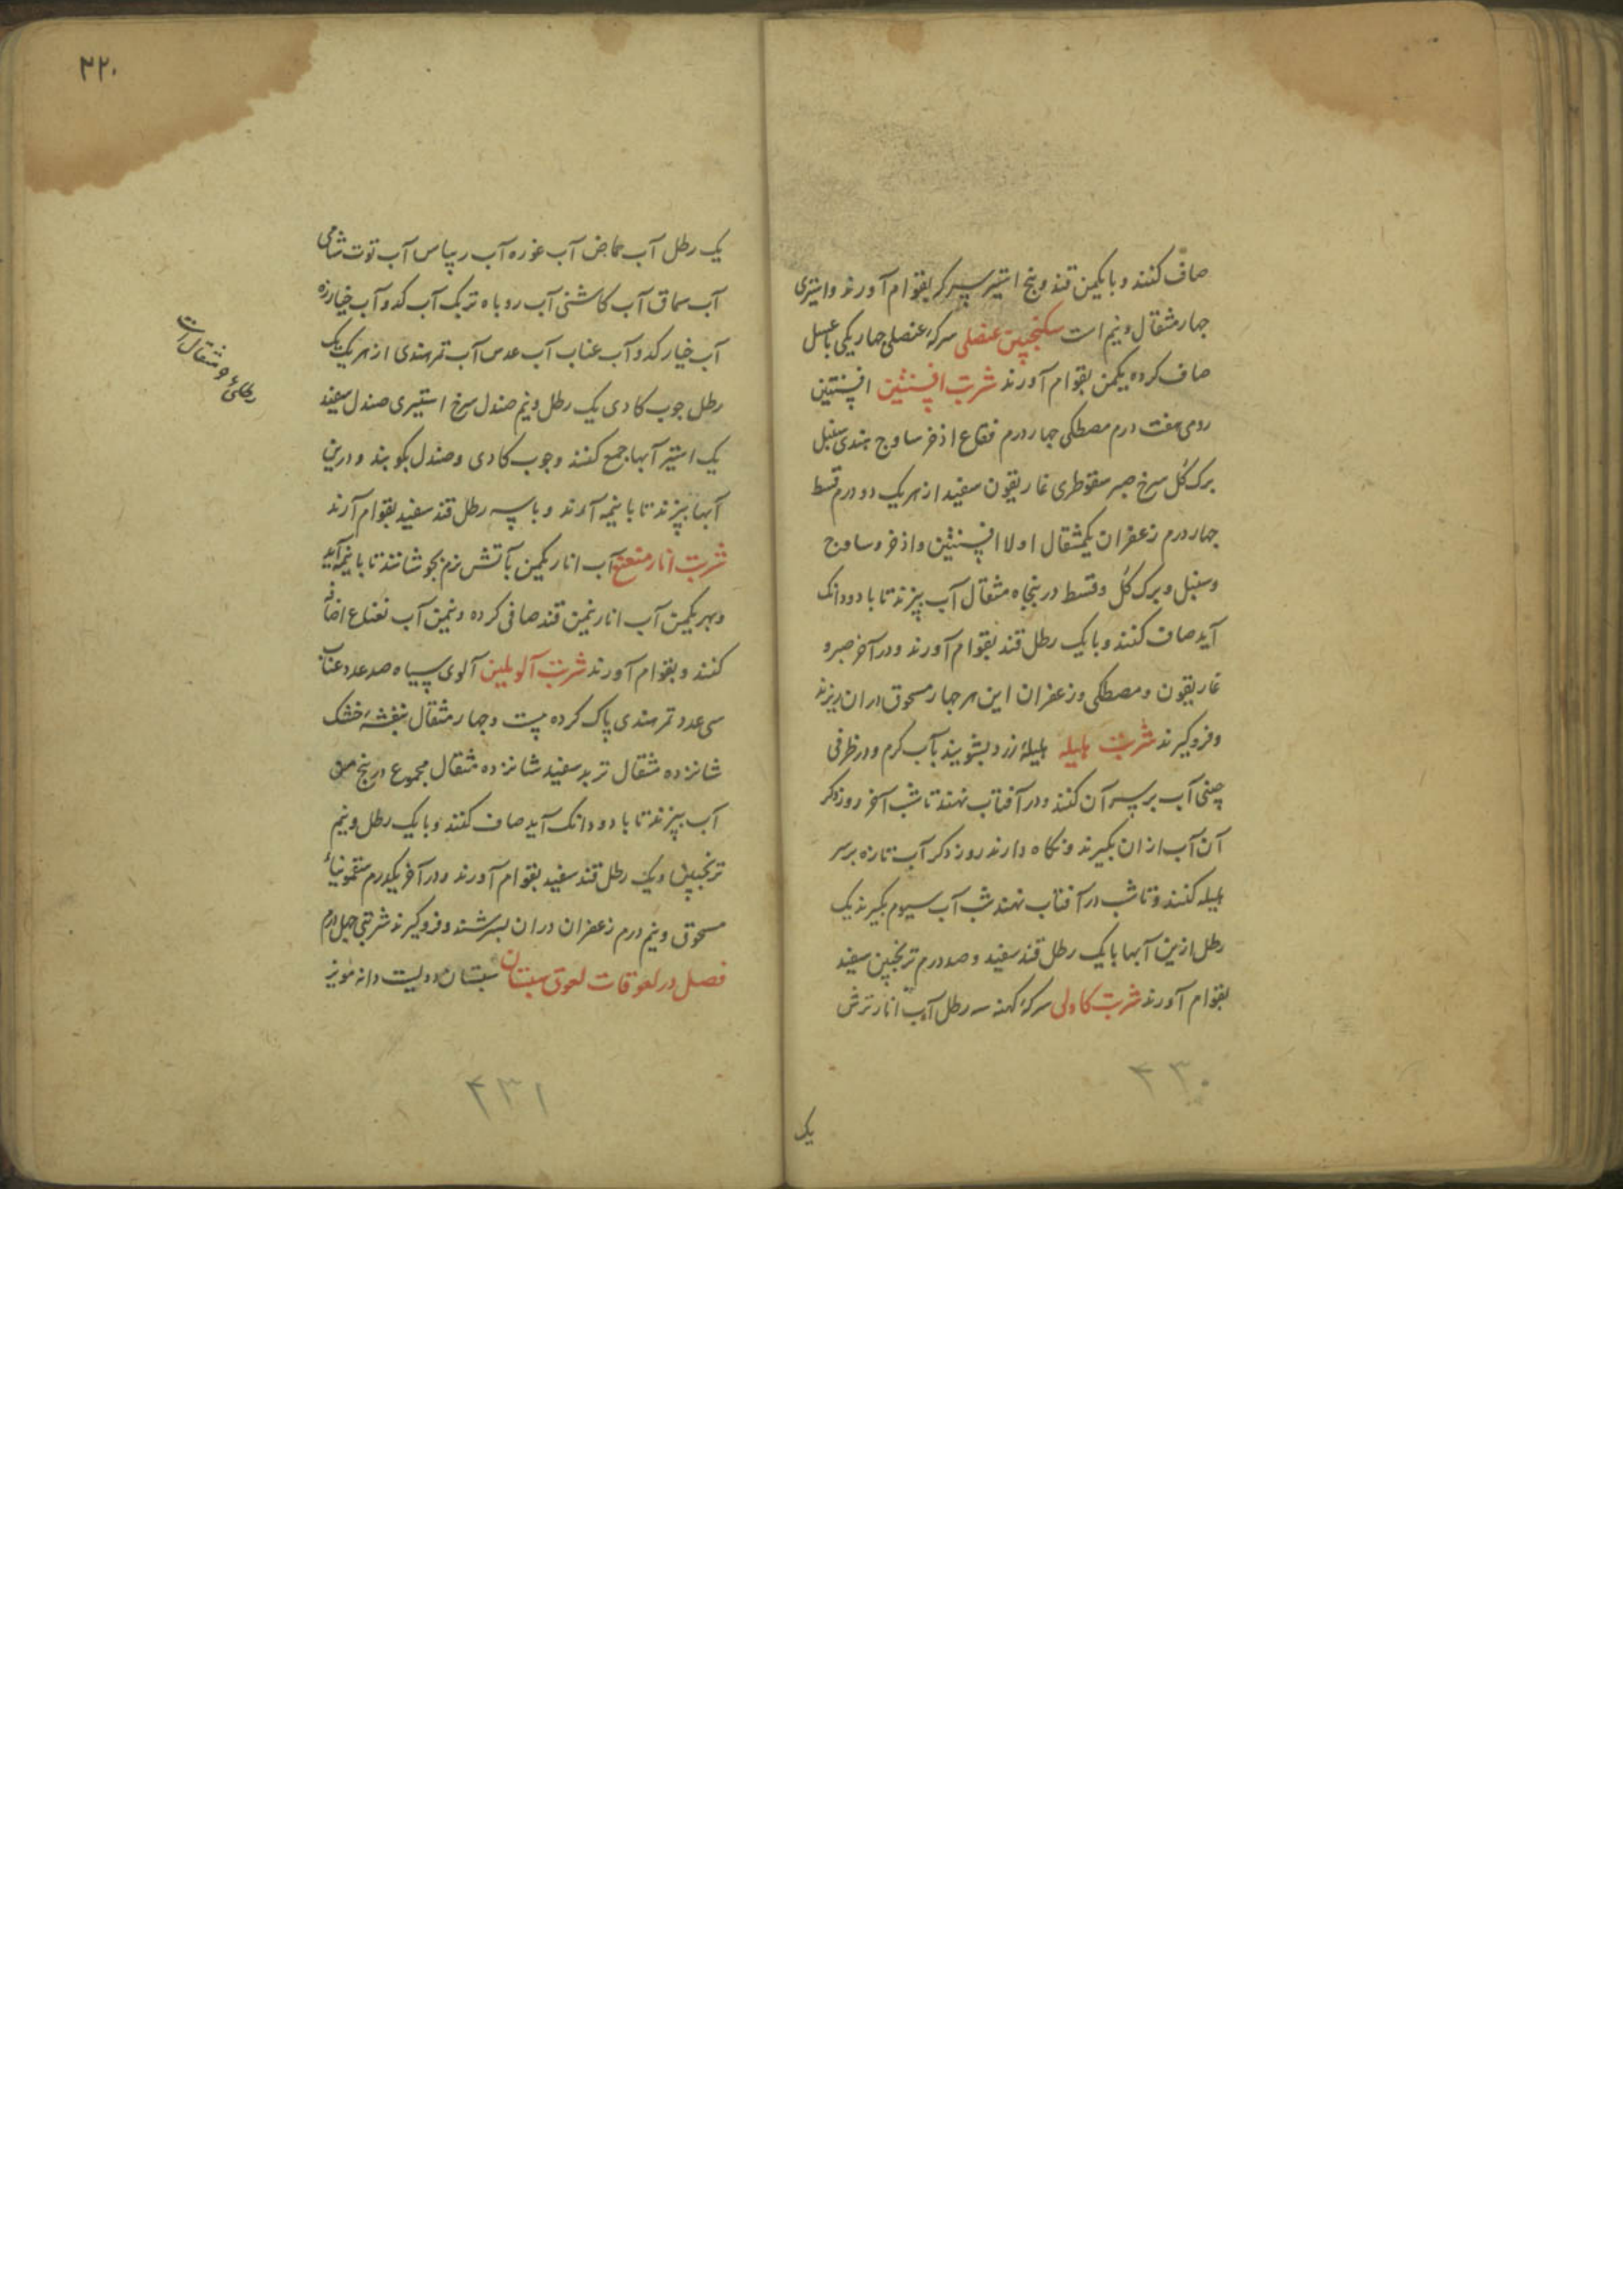 صاف کنند و با یکمن قند و پنج استیر سرکه بقوام آورند و استیری
چهار مثقال و نیم است سکنجبین عنصلی سرکهٔ عنصلی چهار یکی با عسل
صاف کرده یکمن بقوام آورند شربت افسنتین افسنتین
رومی هفت درم مصطکی چهار درم فقاع اذخر ساوج هندی سنبل
برک کل سرخ صبر سقوطری غاریقون سفید از هر یک دو درم قسط
چهار درم زعفران یکمثقال اولا افسنتین و اذخر و ساوج
و سنبل و برک کل و قسط در پنجاه مثقال آب بپزند تا با دو دانک
آید صاف کنند و با یک رطل قند بقوام آورند و در آخر صبر و
غاریقون و مصطکی و زعفران این هر چهار مسحوق دران ریزند
و فرو کیرند شربت هلیله هلیلهٔ زرد بشویند بآب کرم و در ظرفی
چینی آب بر سر آن کنند و در آفتاب نهند تا شب آخر روز دکر
آن آب ازان بکیرند و نکاه دارند روز دکر آب تازه بر سر
هلیله کنند و تا شب در آفتاب نهند شب آب سیوم بکیرند یک
رطل ازین آبها با یک رطل قند سفید و صد درم ترنجبین سفید
بقوام آورند شربت کاولی سرکهٔ کهنه سه رطل آب انار ترش
۴۳۰
یک
۲۲۰
یک رطل آب حماض آب غوره آب ریباس آب توت شامی
آب سماق آب کاشنی آب روباه تربک آب کدو آب خیارزه
آب خیار کدو آب عناب آب عدس آب تمر هندی از هر یک یک
رطل چوب کادی یک رطل و نیم صندل سرخ استیری صندل سفید
یک استیر آبها جمع کنند و چوب کادی و صندل بکوبند و درین
آبها بپزند تا با نیمه آید و با سه رطل قند سفید بقوام آرند
شربت انار منعنع آب انار یکمن بآتش نرم بجوشانند تا با نیمه آید
و بهر یکمن آب انار نیمن قند صافی کرده و نیمن آب نعناع اضافه
کنند و بقوام آورند شربت آلو ملین آلوی سیاه صد عدد عناب
سی عدد تمر هندی پاک کرده بیست و چهار مثقال بنفشهٔ خشک
شانزده مثقال تربد سفید شانزده مثقال مجموع در پنج من
آب بپزند تا با دو دانک آید صاف کنند و با یک رطل و نیم
ترنجبین و یک رطل قند سفید بقوام آورند و در آخر یکدرم سقمونیاء
مسحوق و نیم درم زعفران دران بسرشند و فرو کیرند شربتی چهل درم
فصل در لعوقات لعوق سبستان سبستان دویست دانه مویز
۴۳۱